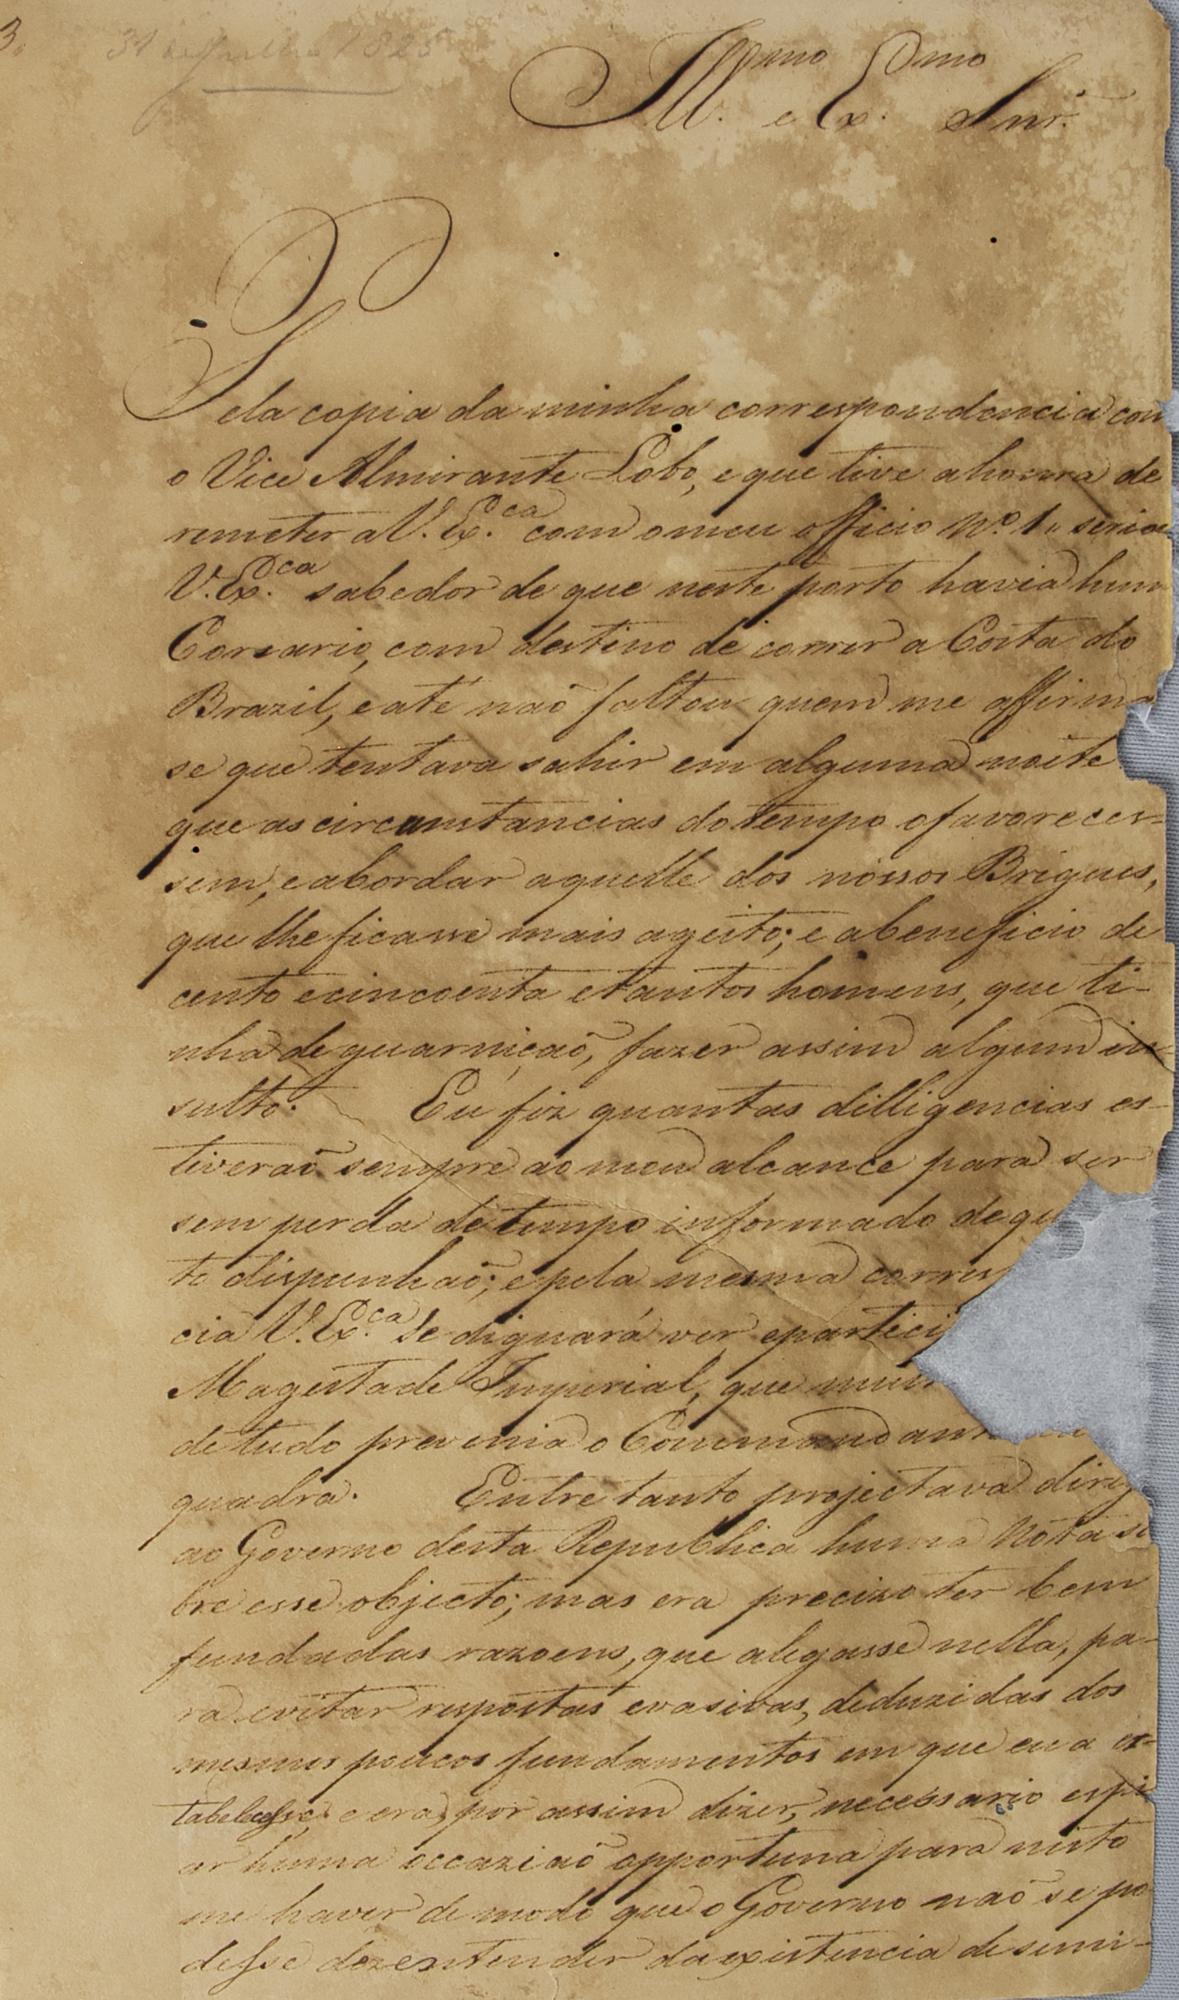 3.
31 de Julho 1825
Ill.mo e Ex.mo Snr.
Pela copia da minha correspondencia com
o Vice Almirante Lobo, e que tive a honra de
remeter a V. Ex.ca com o meu officio Nº 1,, seria
V. Ex.ca sabedor de que neste porto havia hum
Corsario, com destino de correr a Costa do
Brazil, e até naõ faltou quem me affirma
se que tentava sahir em alguma noite
que as circumstancias do tempo o favoreces-
sem, e abordar aquelle dos nossos Brigues,
que lhe ficasse mais a geito; e a beneficio de
cento e cincoenta e tantos homens, que ti-
nha de guarniçaõ, fazer assim algum in-
sulto. Eu fiz quantas dilligencias es-
tiveraõ sempre ao meu alcance para ser
sem perda de tempo informado de qu
to dispunhaõ; e pela mesma corres
cia V. Ex.ca se dignará ver, e partici
Magestade Imperial, que
de tudo prevenia o Commandan
quadra. Entre tanto projectava dirig
ao Governo desta Republica huma Nota so
bre esse objecto; mas era precizo ter bem
fundadas razoens, que alegasse nella, pa-
ra evitar respostas evasivas, deduzidas dos
mesmos poucos fundamentos em que eu a es-
tabelecesse; e era, por assim dizer, necessario espi
ar huma occaziaõ opportuna para nisto
me haver de modo que o Governo naõ se po
desse dezentender da existencia de simi-